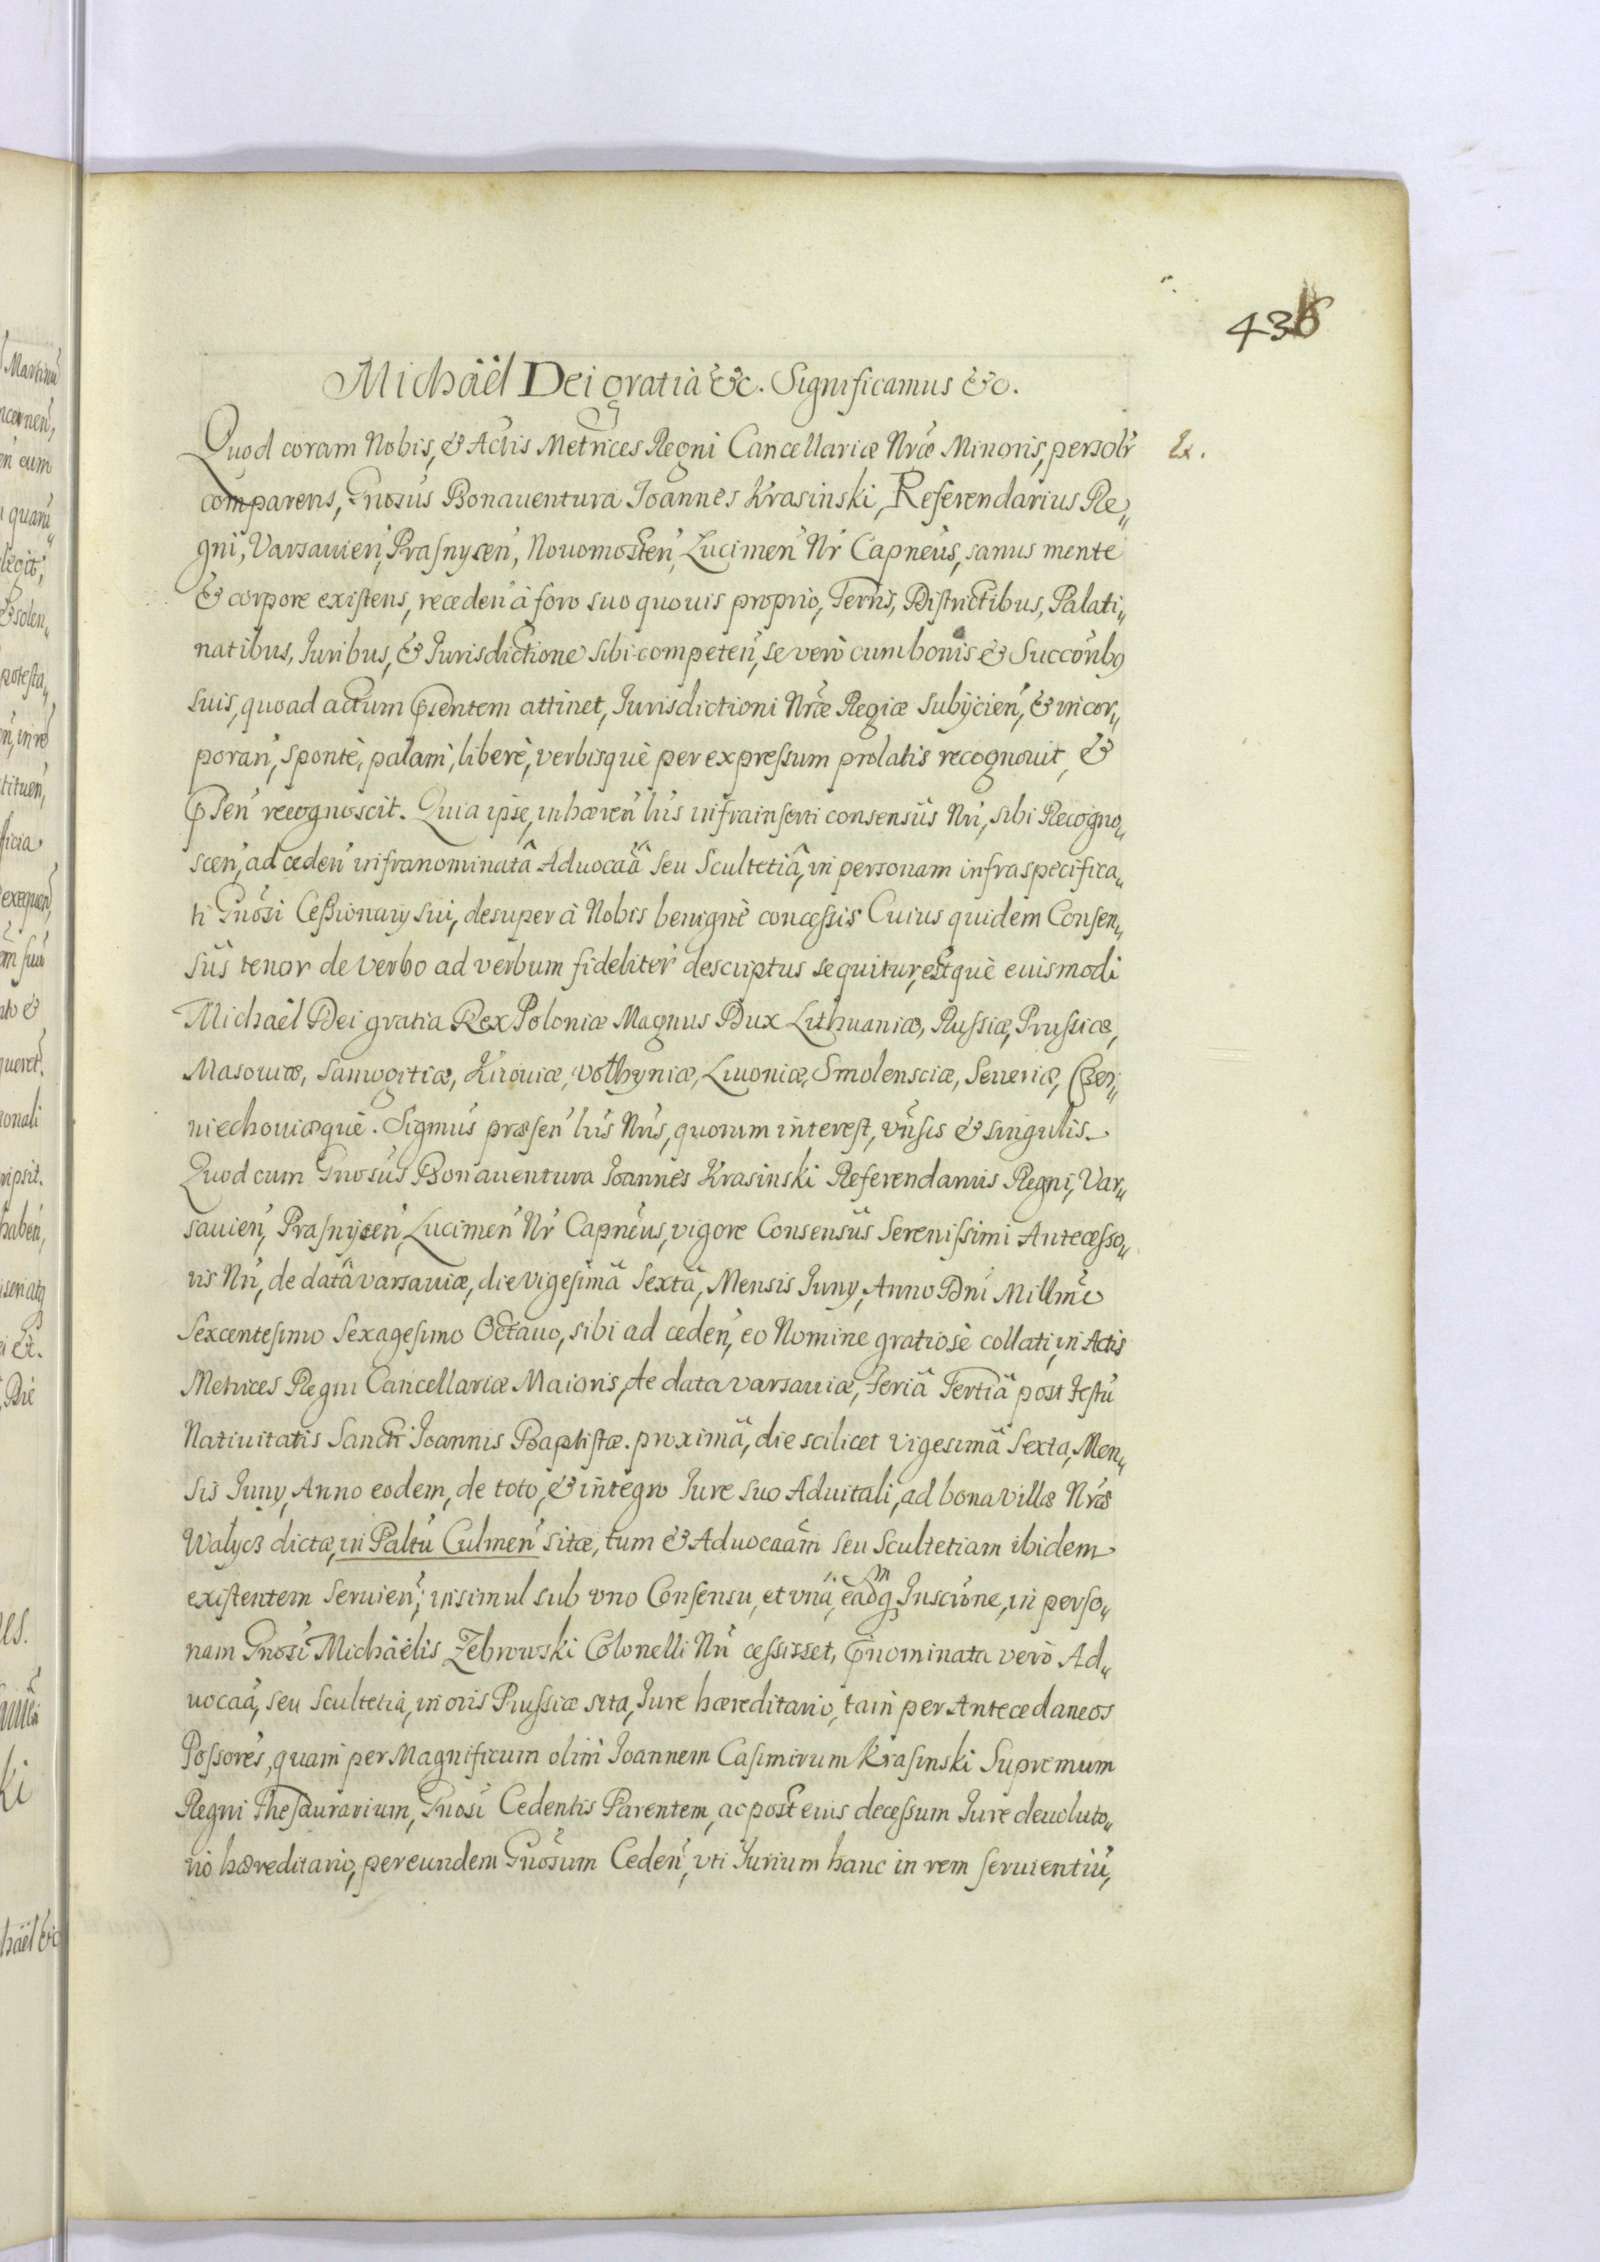 436
Michäël Dei gratiâ &c. Significamus &c.
Quod coram Nobis, & Actis Metrices Regni Cancellariæ Nr̃æ Minoris, personlr̃ Ex.
comparens, Gnosus Bonauentura Joannes Krasinski, Referendarius Re„
gni, Varsauien̄, Prasnyscen̄, Nouomosten̄, Lucimen̄ Nr̄ Capneus, sanus mente
& corpore existens, receden̄ à foro suo quouis proprio, Terris, Districtibus, Palati„
natibus, Juribus, & Jurisdictione sibi competen̄, se verò cum bonis & Succorib9
suis, quoad actum p̄sentem attinet, Jurisdictioni Nr̃æ Regiæ subijcien̄, & incor„
poran̄, spontè, palam̀, liberè, verbisquè per expressum prolatis recognouit, &
p̄sen̄ recognoscit. Quia ipse, inhæren̄ lris infrainserti consensûs Nri, sibi Recogno„
scen̄, ad ceden̄ infranominatâ Aduocaâ seu Scultetiâ, in personam infraspecifica„
ti Gnosi Cessionarij sui, desuper à Nobis benignè concessis Cuius quidem Consen„
sûs tenor de verbo ad verbum fideliter descriptus sequitur, estquè euismodi
Michaêl Dei gratia Rex Poloniæ Magnus Dux Lithuaniæ, Russiæ, Prussiæ,
Masouiæ, Samogitiæ, Kiiouiæ, Volhyniæ, Liuoniæ, Smolensciæ, Seueriæ, Czer„
niechouiæquè. Sigmus præsen̄ lris Nris, quorum interest, vnsis & singulis.
Quod cum Gnosus Bonauentura Joannes Krasinski Referendarius Regni, Var„
sauien̄, Prasnyscen̄, Lucimen̄ Nr̄ Capneus, vigore Consensûs Serenissimi Antecesso„
ris Nri, de datâ varsauiæ, die vigesimâ Sextâ, Mensis Junij, Anno Dni Millmo
Sexcentesimo Sexagesimo Octauo, sibi ad ceden̄, eo Nomine gratiosè collati, in Actis
Metrices Regni Cancellariæ Maioris, de data varsauiæ, Feriâ Tertiâ post Festū
Natiuitatis Sancti Joannis Baptistæ proximâ, die scilicet vigesimâ Sexta, Men„
sis Junij, Anno eodem, de toto, & integro Jure suo Aduitali, ad bona villæ Nræ
Walycz dictæ, in Paltū Culmen̄ sitæ, tum & Aduocaām seu Scultetiam ibidem
existentem seruien̄; insimul sub vno Consensu, et vnâ, eadmq̨ Inscrione, in perso„
nam Gnosi Michäëlis Zebrowski Colonelli Nri cessisset, p̄nominata verò Ad„
uocaā, seu Scultetia, in oris Prussiæ sita, Jure hæreditario, tam̀ per Antecedaneos
Possores, quam̀ per Magnificum olim̀ Joannem Casimirum Krasinski Supremum
Regni Thesaurarium, Gnosi Cedentis Parentem, ac post eius decessum Jure deuoluto„
rio hæreditario, per eundem Gnosum Ceden̄, vti Jurium hanc in rem seruientiū,